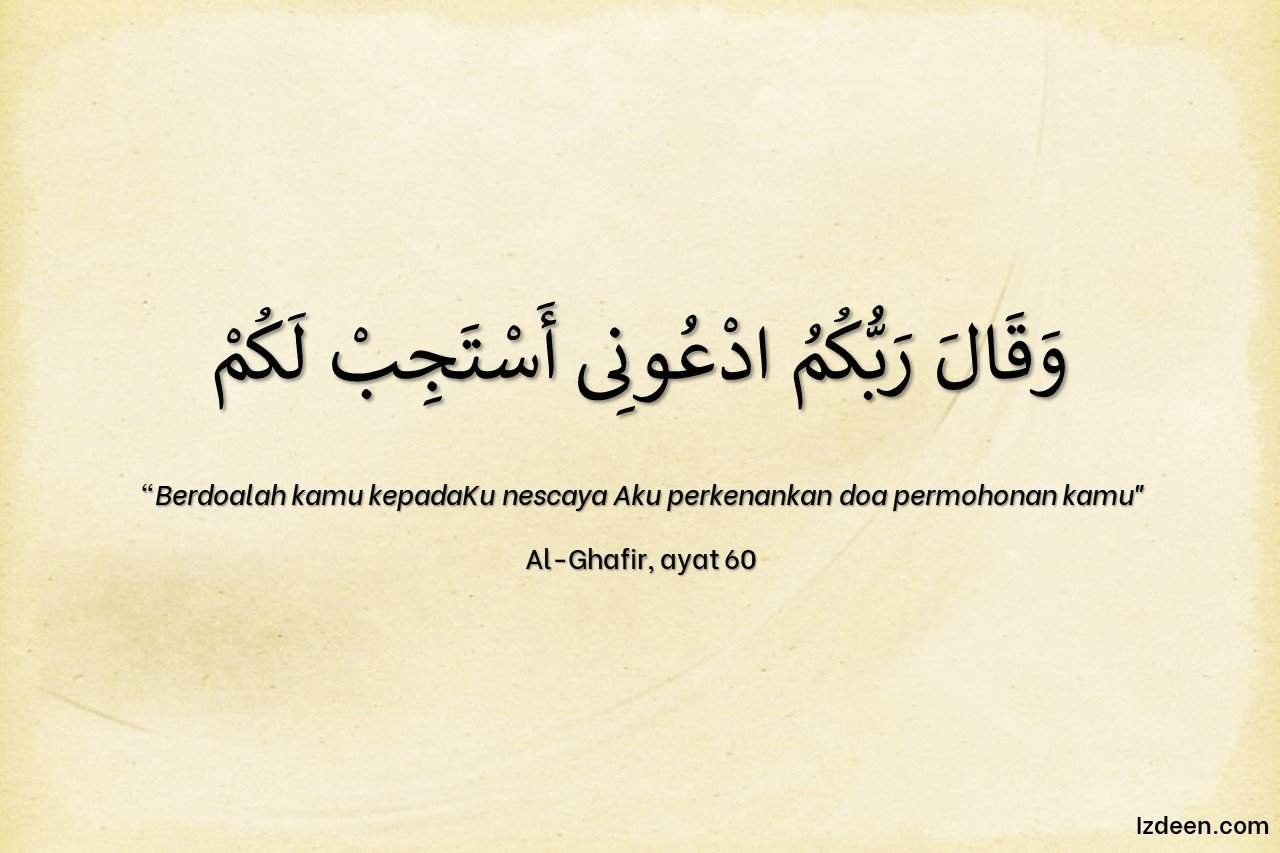 وَقَالَ رَبُّكُمُ ادْعُونِى أَسْتَجِبْ لَكُمْ
“Berdoalah kamu kepadaKu nescaya Aku perkenankan doa permohonan kamu"
Al-Ghafir, ayat 60
Izdeen.com